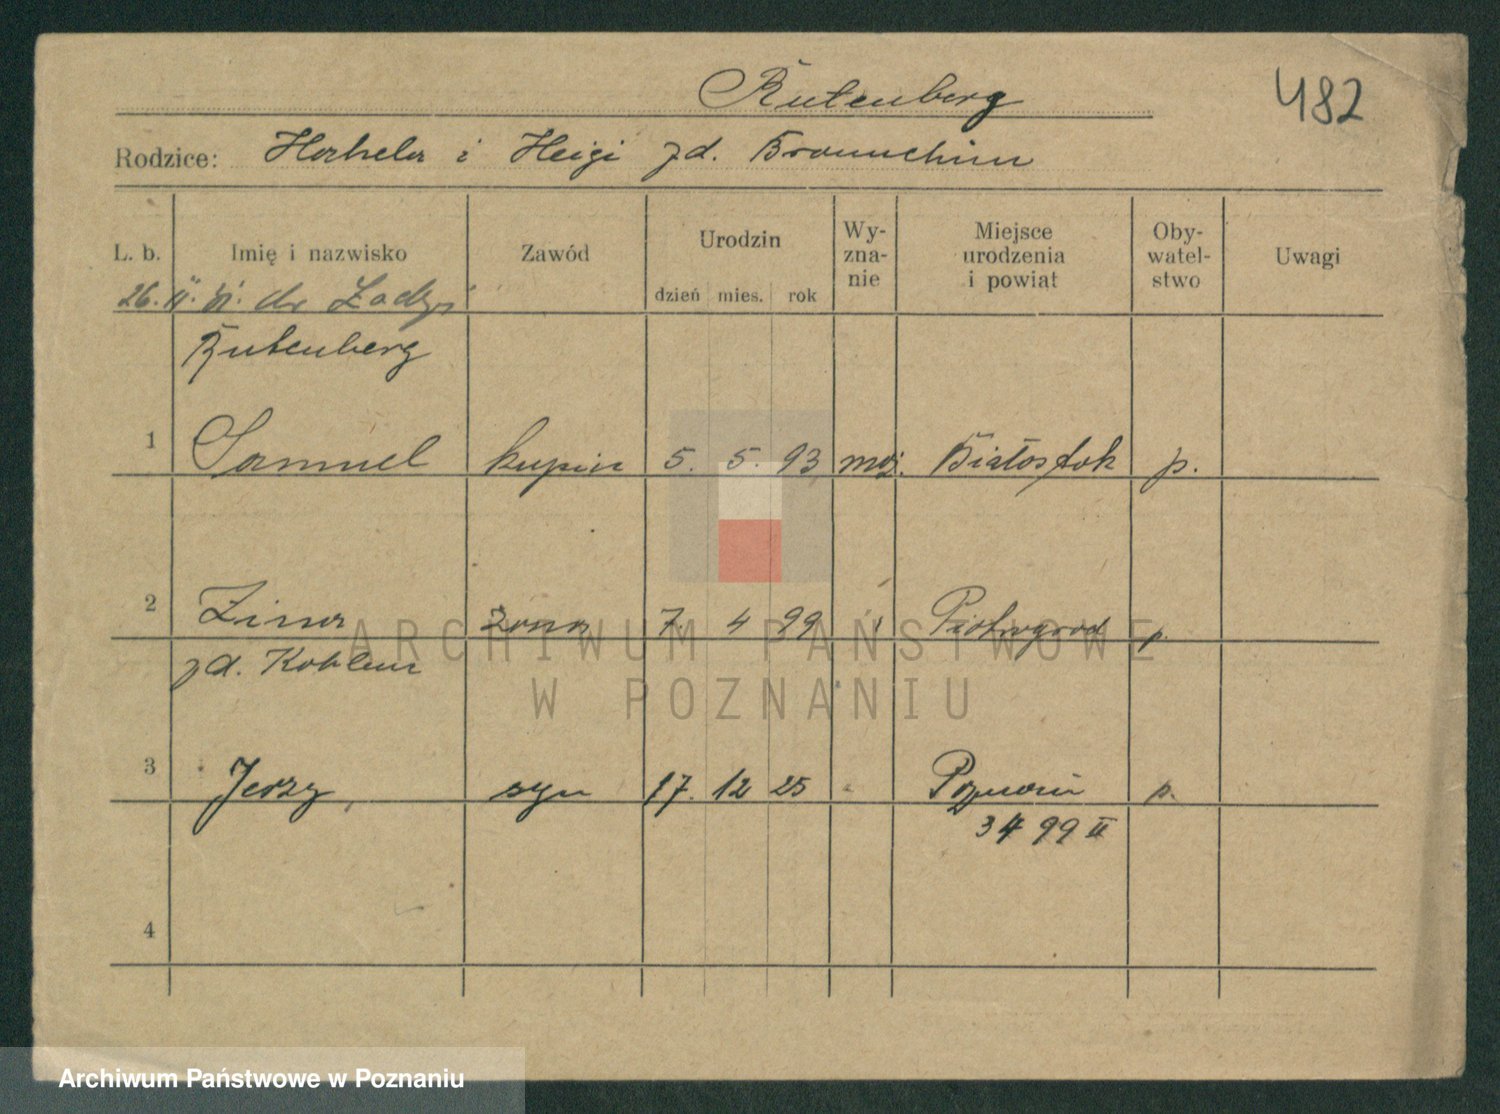 Rutenberg
482
Rodzice: i Heigi zd.
L. b. Imię i nazwisko Zawód Urodzin dzień mies. rok Wy-zna-nie Miejsce urodzenia i powiat Oby-watel-stwo Uwagi
26. II. do Łodzi
Rutenberg
1 Samuel kupiec 5. 5. 93 mojż. Białystok p.
2 Zina żona 7. 4 99 Piotrogrod p.
zd.
3 Jerzy syn 17. 12 25 Poznań p.
3499 II
4
ARCHIWUM PAŃSTWOWE
W POZNANIU
Archiwum Państwowe w Poznaniu